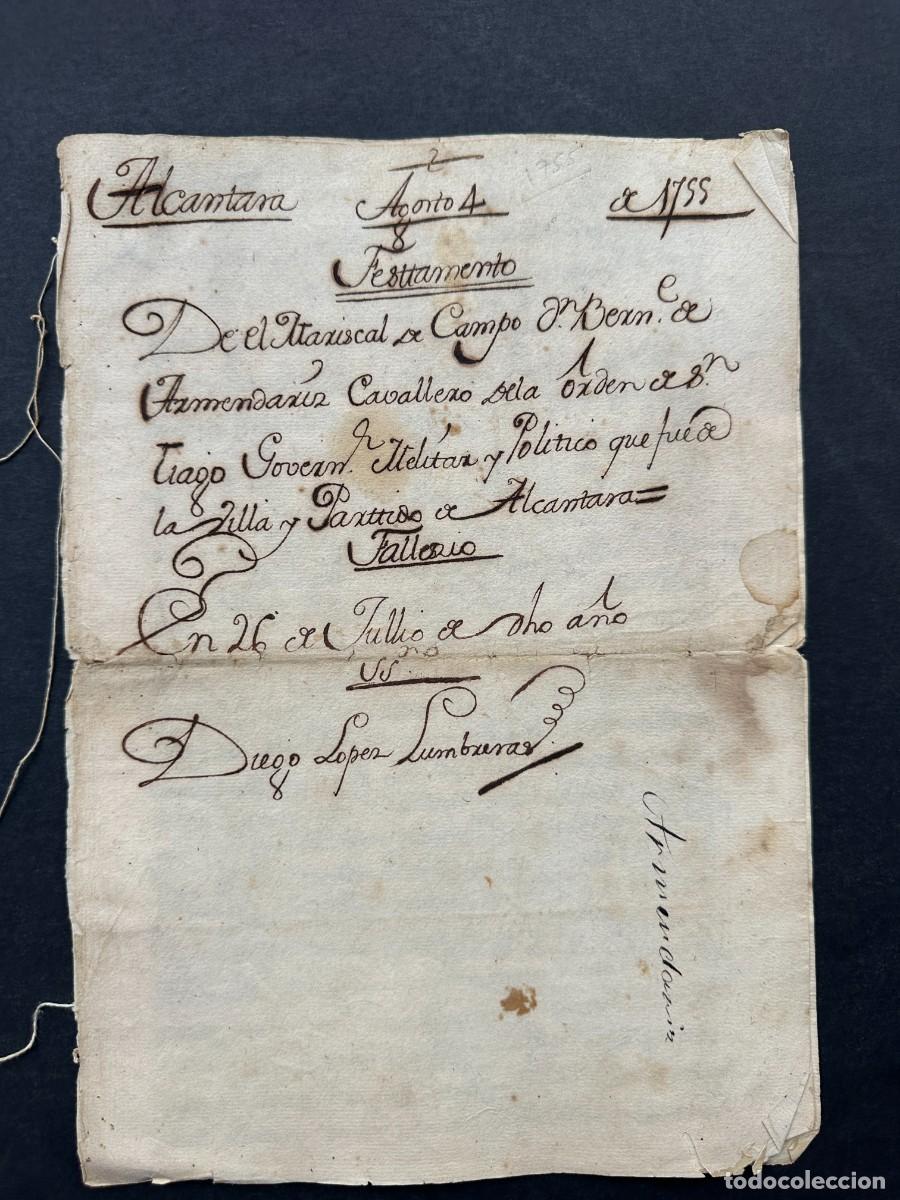 2
1755
Alcantara Agosto 4 de 1755
Testtamento
De el Mariscal de Campo Dn Berne de
Armendariz Cavallero dela Orden de Sn
tiago Governr Melitar y Politico que fue de
la Villa y Parttido de Alcantara =
Fallezio
En 26 de Jullio de dho año
SSno
Diego Lopez Lumbreras
Armendariz
todocoleccion